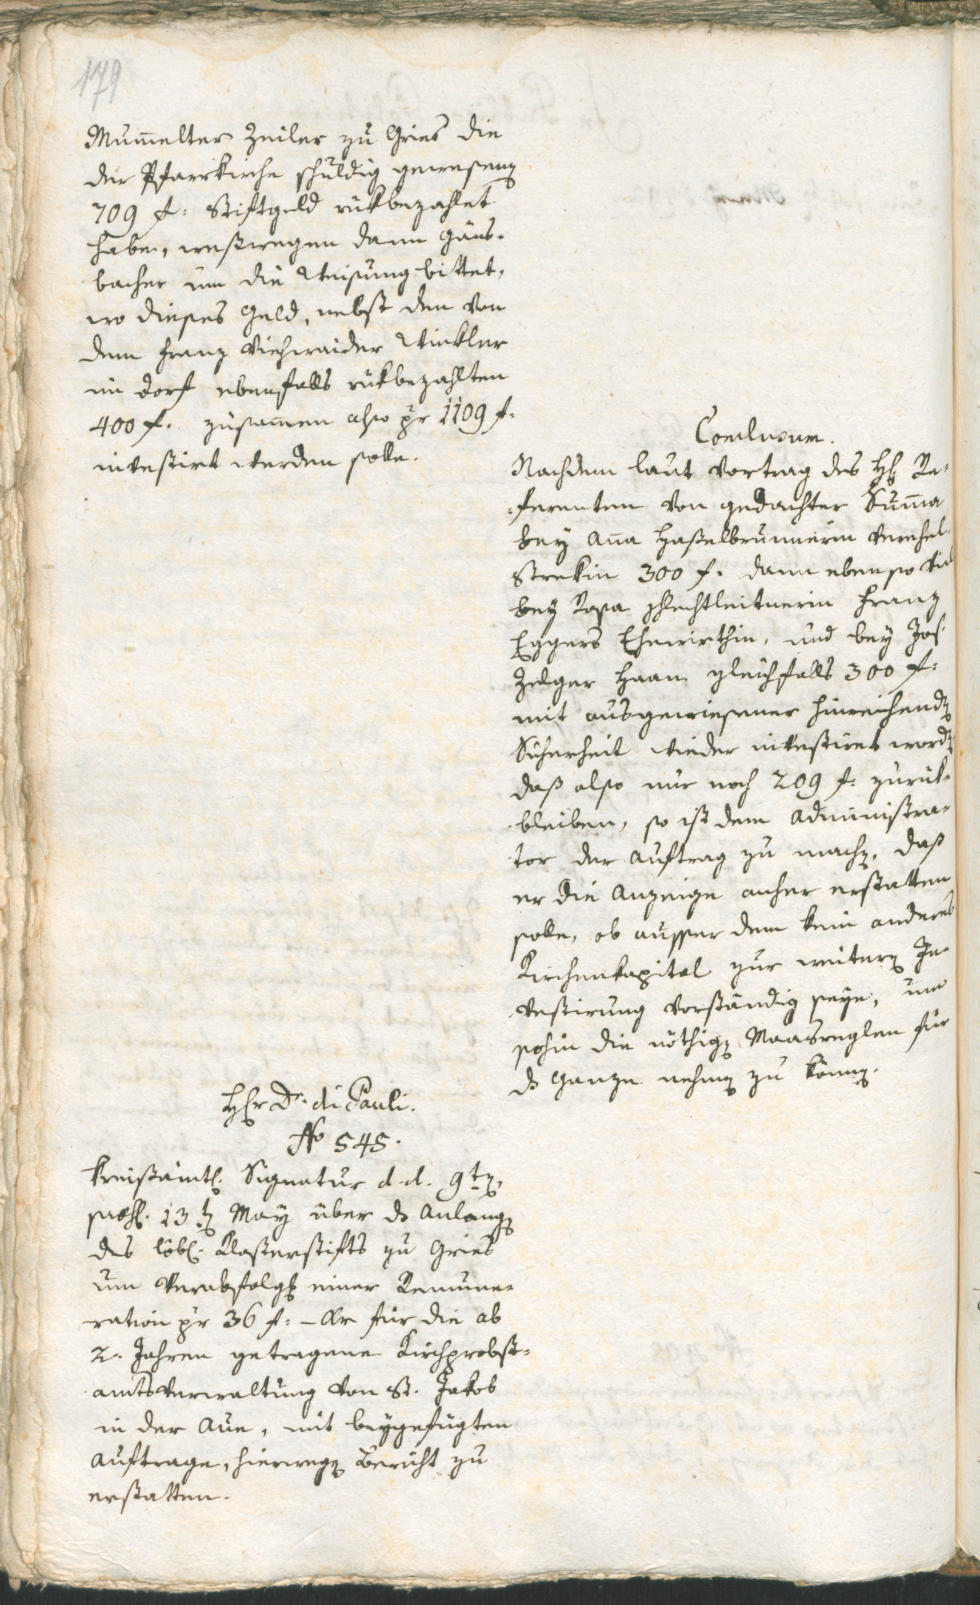 179
Mum̅elter Zeiler zu Gries die
der Pfarrkirche schuldig gewesene
709 f: Stiftgeld rükbezahlet
habe, weßwegen dann Gäns-
bacher um die Weisung bittet,
wo dieses Geld, nebst den von
dem Franz Viehweider Winkler
im Dorf ebenfalls rükbezahlten
400 f. zusam̅en also pr 1109 f.
investirt werden solle.
Conclusum.
Nachdem laut Vortrag des H Re-
ferenten von gedachter Sum̅a
bey An̅a Haßelbrunnerin verehel.
Strekin 300 f. dann ebenso viel
bey Rosa Schlechtleitnerin Franz
Eggers Ehewirthin, und bey Jos.
Zelger Haam gleichfalls 300 f:
mit ausgewiesener hinreichende
Sicherheit wieder investiret worde
daß also nur noch 209 f: zurük-
bleiben, so ist dem Administra-
tor der Auftrag zu mache, daß
er die Anzeige anher erstatten
solle, ob ausser dem kein anderes
Kirchenkapital zur weitere In-
vestirung vorständig seye, um
sohin die nöthige Maasreglen für
ds Ganze nehme zu könne.
Hr Dr. di Pauli.
No 545.
Kreisämtl. Signatur d.d. 9te,
praes. 13te May über ds Anlange
des löbl. Klosterstifts zu Gries
um Verabfolg einer Remune-
ration pr 36 f: – xr für die ab
2. Jahren getragene Kirchprobst-
amtsverwaltung von St. Jakob
in der Aue, mit beygefügten
Auftrage, hierwege Bericht zu
erstatten.